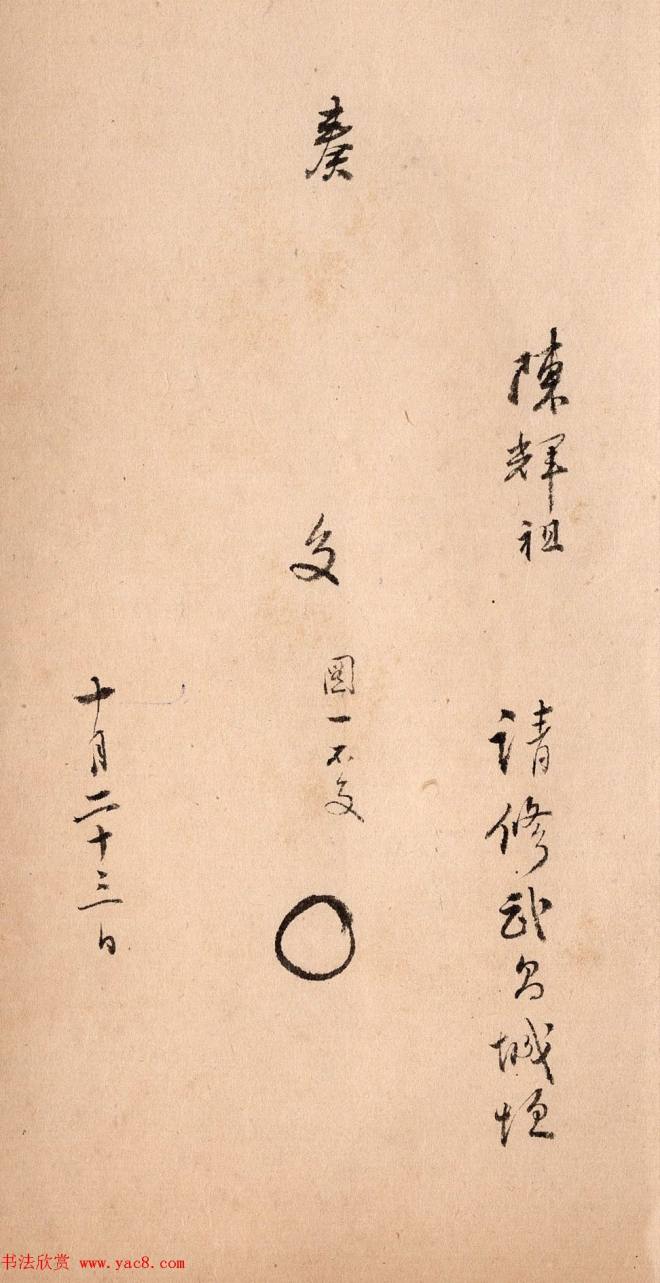 陳輝祖 請修武昌城垣
奏
交 圖一不交
十月二十三日
书法欣赏 www.yac8.com